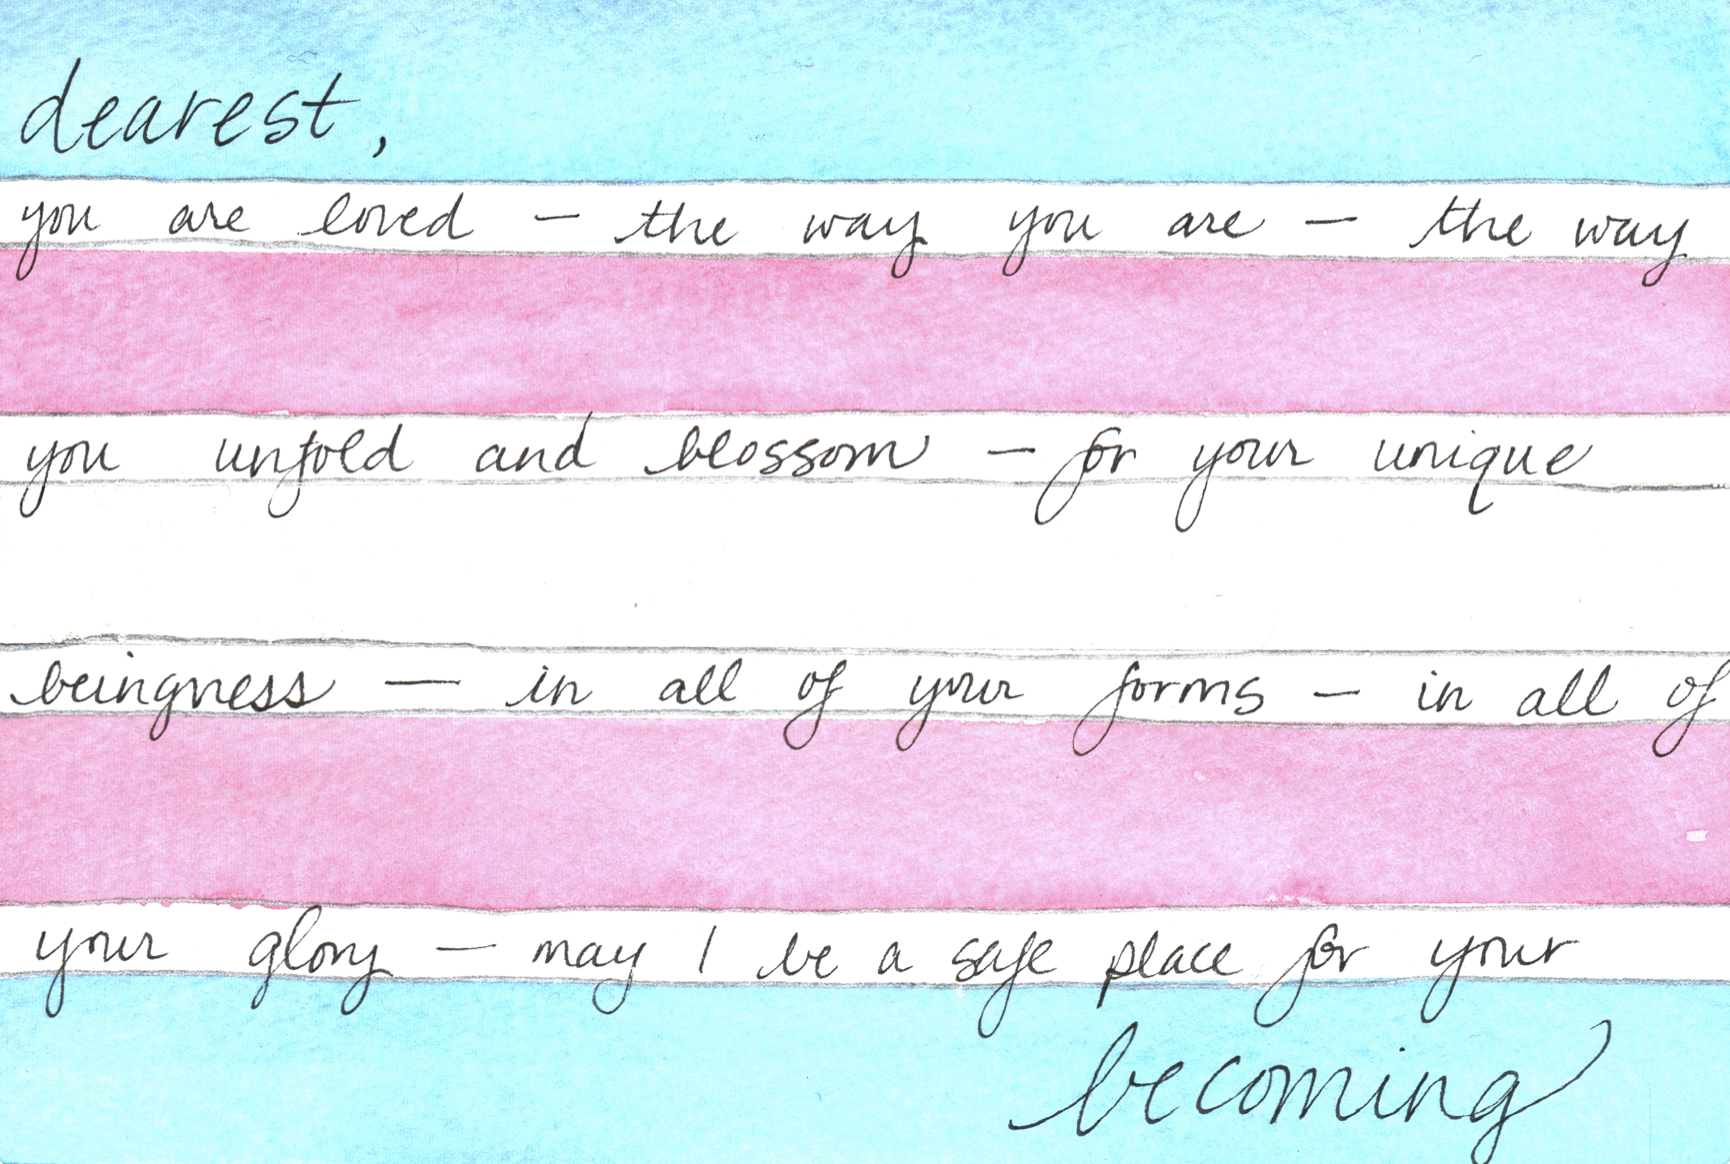 dearest,
you are loved — the way you are — the way
you unfold and blossom — for your unique
beingness — in all of your forms — in all of
your glory — may I be a safe place for your
becoming